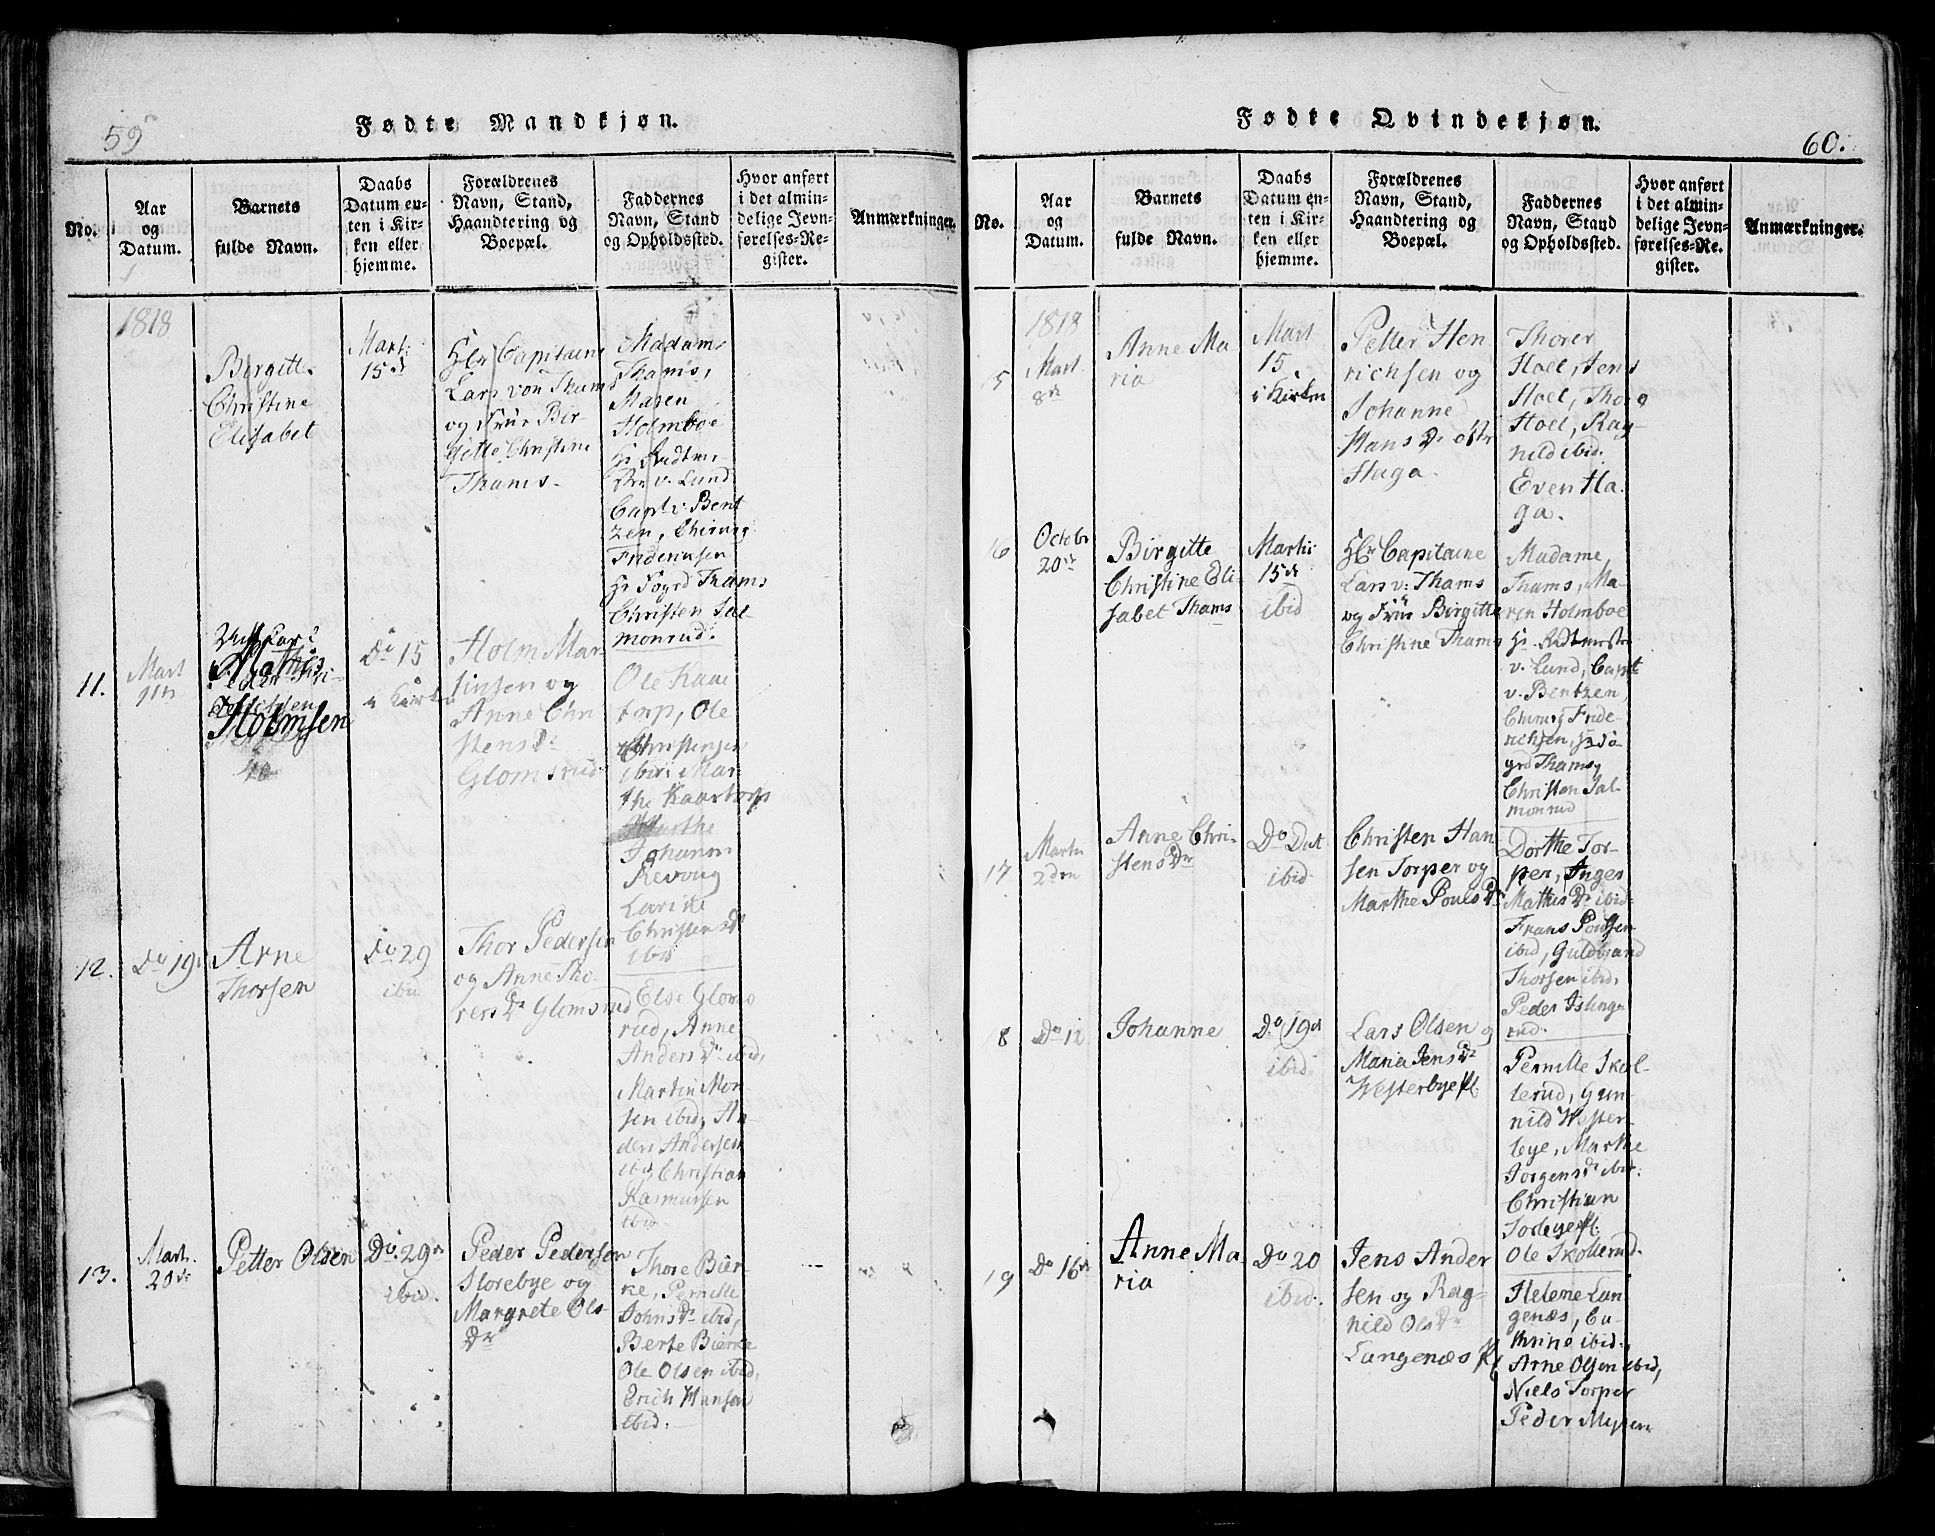 59
Fødte Mandkjøn.
No.
Aar
og
Datum.
Barnets
fulde Navn.
Daabs
Datum en-
ten i Kir-
ken eller
hjemme.
Forældrenes
Navn, Stand,
Haandtering og
Boepæl.
Faddernes
Navn, Stand
og Opholdssted.
Hvor anført
i det almin-
delige Jevn-
førelses-Re-
gister.
Anmærkninger.
1818
Birgitte
Christine
Elisabet
Mart.
15de
Hr Capitaine
Lars von Thams
og Frue Bir
gitte Christine
Thams.
Madam
Thams,
Maren
Holmboe
Hr Ridtme-
v. Lund
Capt v. Bent
zen, Chirurg
Friderichsen
Thams
Christen Sal
monrud.
11.
Mart
Mathis
Holmsen
Do 15
i Kirken
Holm Mar-
tinsen og
Anne Chri
stens Dr
Glomsrud
Ole Kaae
torp, Ole
Christensen
ibid. Mar-
the Kaartorp
Marthe
Johann
Christens Dr
ibid
12.
Do 19
Arne
Thorsen
Do 29
ibid
Thor Pedersen
og Anne Tho-
rers Dr Glomsrud
Else Gloms
rud, Anne
Anders Dr ibid,
Martin Mor-
sen ibid, An
ders Andersen
ibid Christian
Rasmussen
ibid.
13.
Mart.
20de
Petter Olsen
Do. 29de
ibid.
Peder Pedersen
Storebye og
Margrete Ols-
Dr
Thore Bier-
ke, Pernille
Johns Dr ibid,
Berte Bierke
Ole Olsen ibid,
Erich Hansen
ibid.
Fødte Qvindekjøn.
60.
No.
Aar
og
Datum.
Barnets
fulde Navn.
Daabs
Datum en-
ten i Kir-
ken eller
hjemme.
Forældrenes
Navn, Stand,
Haandtering og
Boepæl.
Faddernes
Navn, Stand
og Opholdssted.
Hvor anført
i det almin-
delige Jevn-
førelses-Re-
gister.
Anmærkninger.
1818
5
Mart
8de
Anne Ma
ria
Mart
15
i Kirken
Petter Hen
richsen og
Johanne
Hans Dr østr
Haga.
Thorer
Hoel, Jens
Hoel, Thore
Hoel, Rag-
nild ibid.
Even Ha-
ga.
16
Octobr
20de
Birgitte
Christine Eli-
sabet Thams
Martii
15de
ibid
Hr Capitaine
Lars v: Thams
og Frue Birgitte
Christine Thams
Madame
Thams, Ma-
ren Holmboe
Hr Ridtmestr
v. Lund, Capt
v. Bentzen,
Chirurg Fride-
richsen,
Thams,
Christen Sal
monrud
17
Martii
2den
Anne Chri-
stens Dr
Do Dat
ibid
Christen Han-
sen Torper og
Marthe Pouls Dr
Dorthe Tor-
per, Inger
Mathis Dr ibid
Frans Poulsen
ibid, Guldbrand
Thorsen ibid,
Peder Isling-
rud.
18
Do 12
Johanne
Do 19de
ibid
Lars Olsen og
Maria Jens Dr
Westerbye pl.
Pernille Skol-
lerud, Gun-
nild Wester-
bye, Marthe
Jorgens Dr ibid.
Christian
Torbye pl.
Ole Skollerud.
19
Do 16de
Anne Ma-
ria
Do 20
ibid.
Jens Ander
sen og Rag-
nild Ols Dr
Langenæs pl
Helene Lan-
genæs, Ca-
thrine ibid.
Arne Olsen ibid,
Niels Torper
Peder Mysen